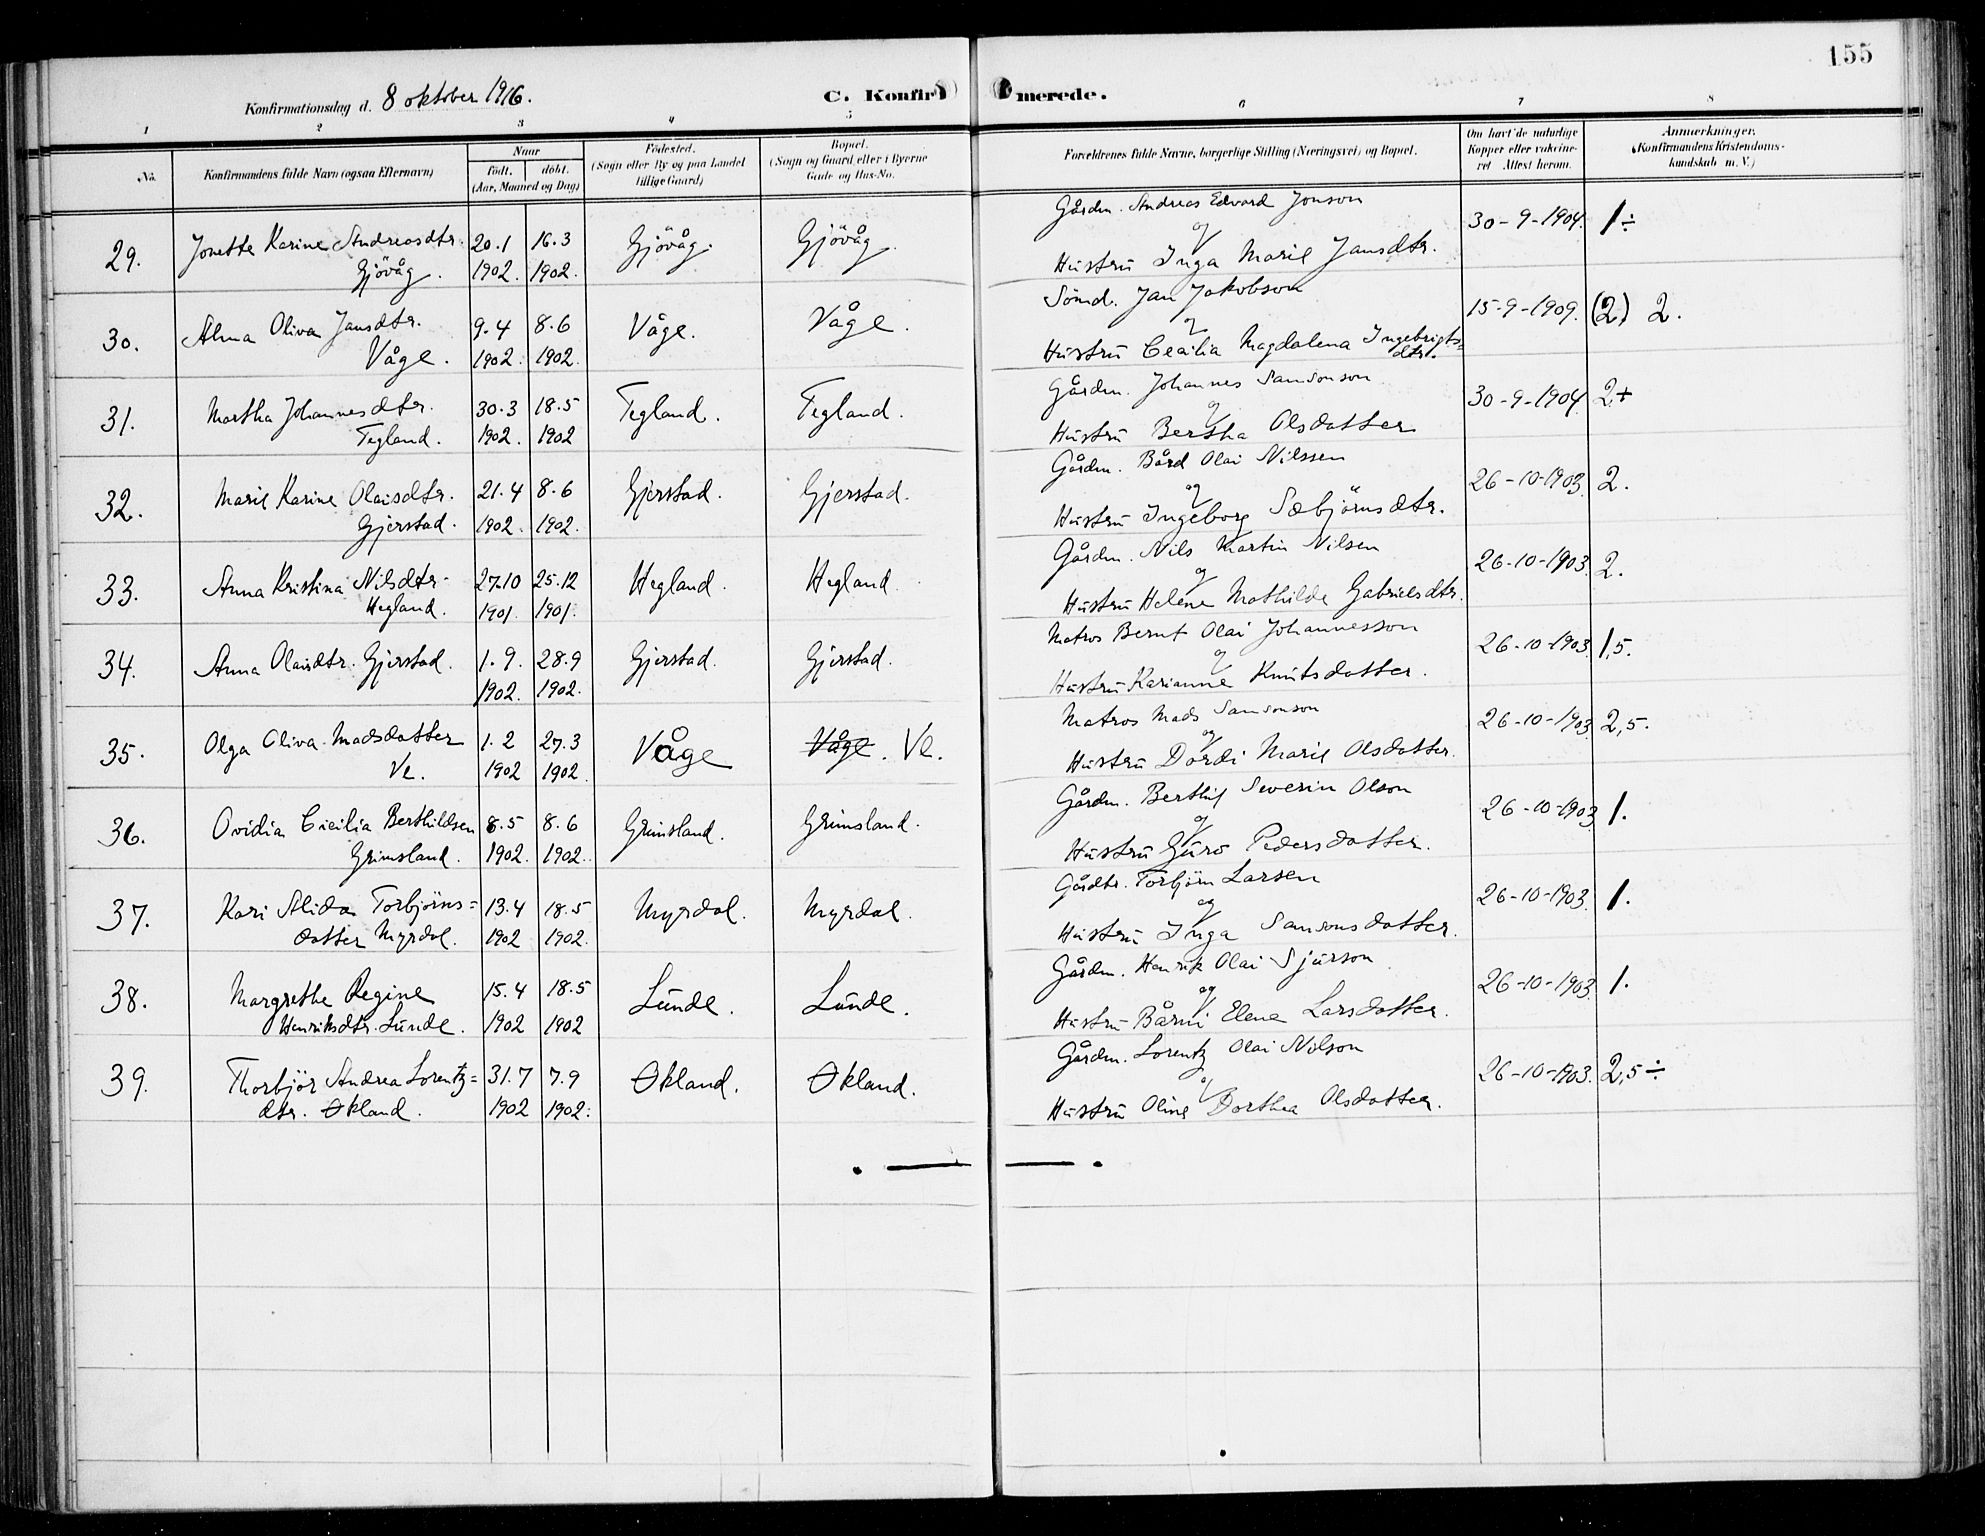 155
Konfirmationsdag d. 8 oktober 1916.
C. Konfirmerede.
1 2 3 4 5 6 7 8
No.
Konfirmandens fulde Navn (ogsaa Efternavn)
Naar
födt. döbt.
(Aar, Maaned og Dag)
Födested.
(Sogn eller By og paa Landet
tillige Gaard)
Bopæl.
(Sogn og Gaard, eller i Byerne
Gade og Hus-No.
Forældrenes fulde Navne, borgerlige Stilling (Næringsvei) og Bopæl.
Om havt de naturlige
Kopper eller vakcine-
ret Attest herom.
Anmærkninger.
(Konfirmandens Kristendoms-
kundskab m. V.)
29. Jonette Karine Andreasdtr. Gjövåg. 20.1 1902. 16.3 1902. Gjövåg. Gjövåg. Gårdm. Andreas Edvard Jonson
og
Hustru Inga Marie Jansdtr. 30-9-1904. 1÷
30. Alma Oliva Jansdtr. Våge. 9.4 1902. 8.6 1902. Våge. Våge. Sömd. Jan Jakobson
og
Hustru Cecilia Magdalena Ingebrigts=
dtr. 15-9-1909. (2) 2.
31. Martha Johannesdtr. Tegland. 30.3 1902. 18.5 1902 Tegland. Tegland. Gårdm. Johannes Samsonson
og
Hustru Bertha Olsdatter 30-9-1904. 2+
32. Marie Karine Olaisdtr. Gjerstad. 21.4 1902. 8.6 1902. Gjerstad. Gjerstad. Gårdm. Bård Olai Nilssen
og
Hustru Ingeborg Sæbjörnsdtr. 26-10-1903. 2.
33. Anna Kristina Nilsdtr. Hegland. 27.10 1901. 25.12 1901. Hegland. Hegland. Gårdm. Nils Martin Nilsen
og
Hustru Helene Mathilde Gabrielsdtr. 26-10-1903. 2.
34. Anna Olaisdtr. Gjerstad. 1.9. 1902. 28.9 1902. Gjerstad. Gjerstad. Matros Bernt Olai Johannesson
og
Hustru Karianne Knutsdatter. 26-10-1903. 1,5.
35. Olga Oliva Madsdatter Ve. 1.2 1902 27.3 1902. Våge Våge. Ve. Matros Mads Samsonson
og
Hustru Dordi Marie Olsdatter. 26-10-1903. 2,5.
36. Ovidia Cicilia Berthildsen Grimsland. 8.5 1902. 8.6 1902. Grimsland. Grimsland. Gårdm. Berthil Severin Olson
og
Hustru Guro Pedersdatter. 26-10-1903. 1.
37. Kari Alida Torbjörns=
datter Myrdal. 13.4 1902 18.5 1902. Myrdal. Myrdal. Gårdbr. Torbjörn Larsen
og
Hustru Inga Samsonsdatter. 26-10-1903. 1.
38. Margrethe Regine
Henriksdtr. Lunde. 15.4 1902 18.5 1902 Lunde. Lunde. Gårdm. Henrik Olai Sjurson
og
Hustru Bårni Elene Larsdatter. 26-10-1903. 1.
39. Thorbjör Andrea Lorentz=
dtr. Økland. 31.7 1902 7.9 1902. Økland. Økland. Gårdm. Lorentz Olai Nilson
og
Hustru Oline Dorthea Olsdatter. 26-10-1903. 2,5÷